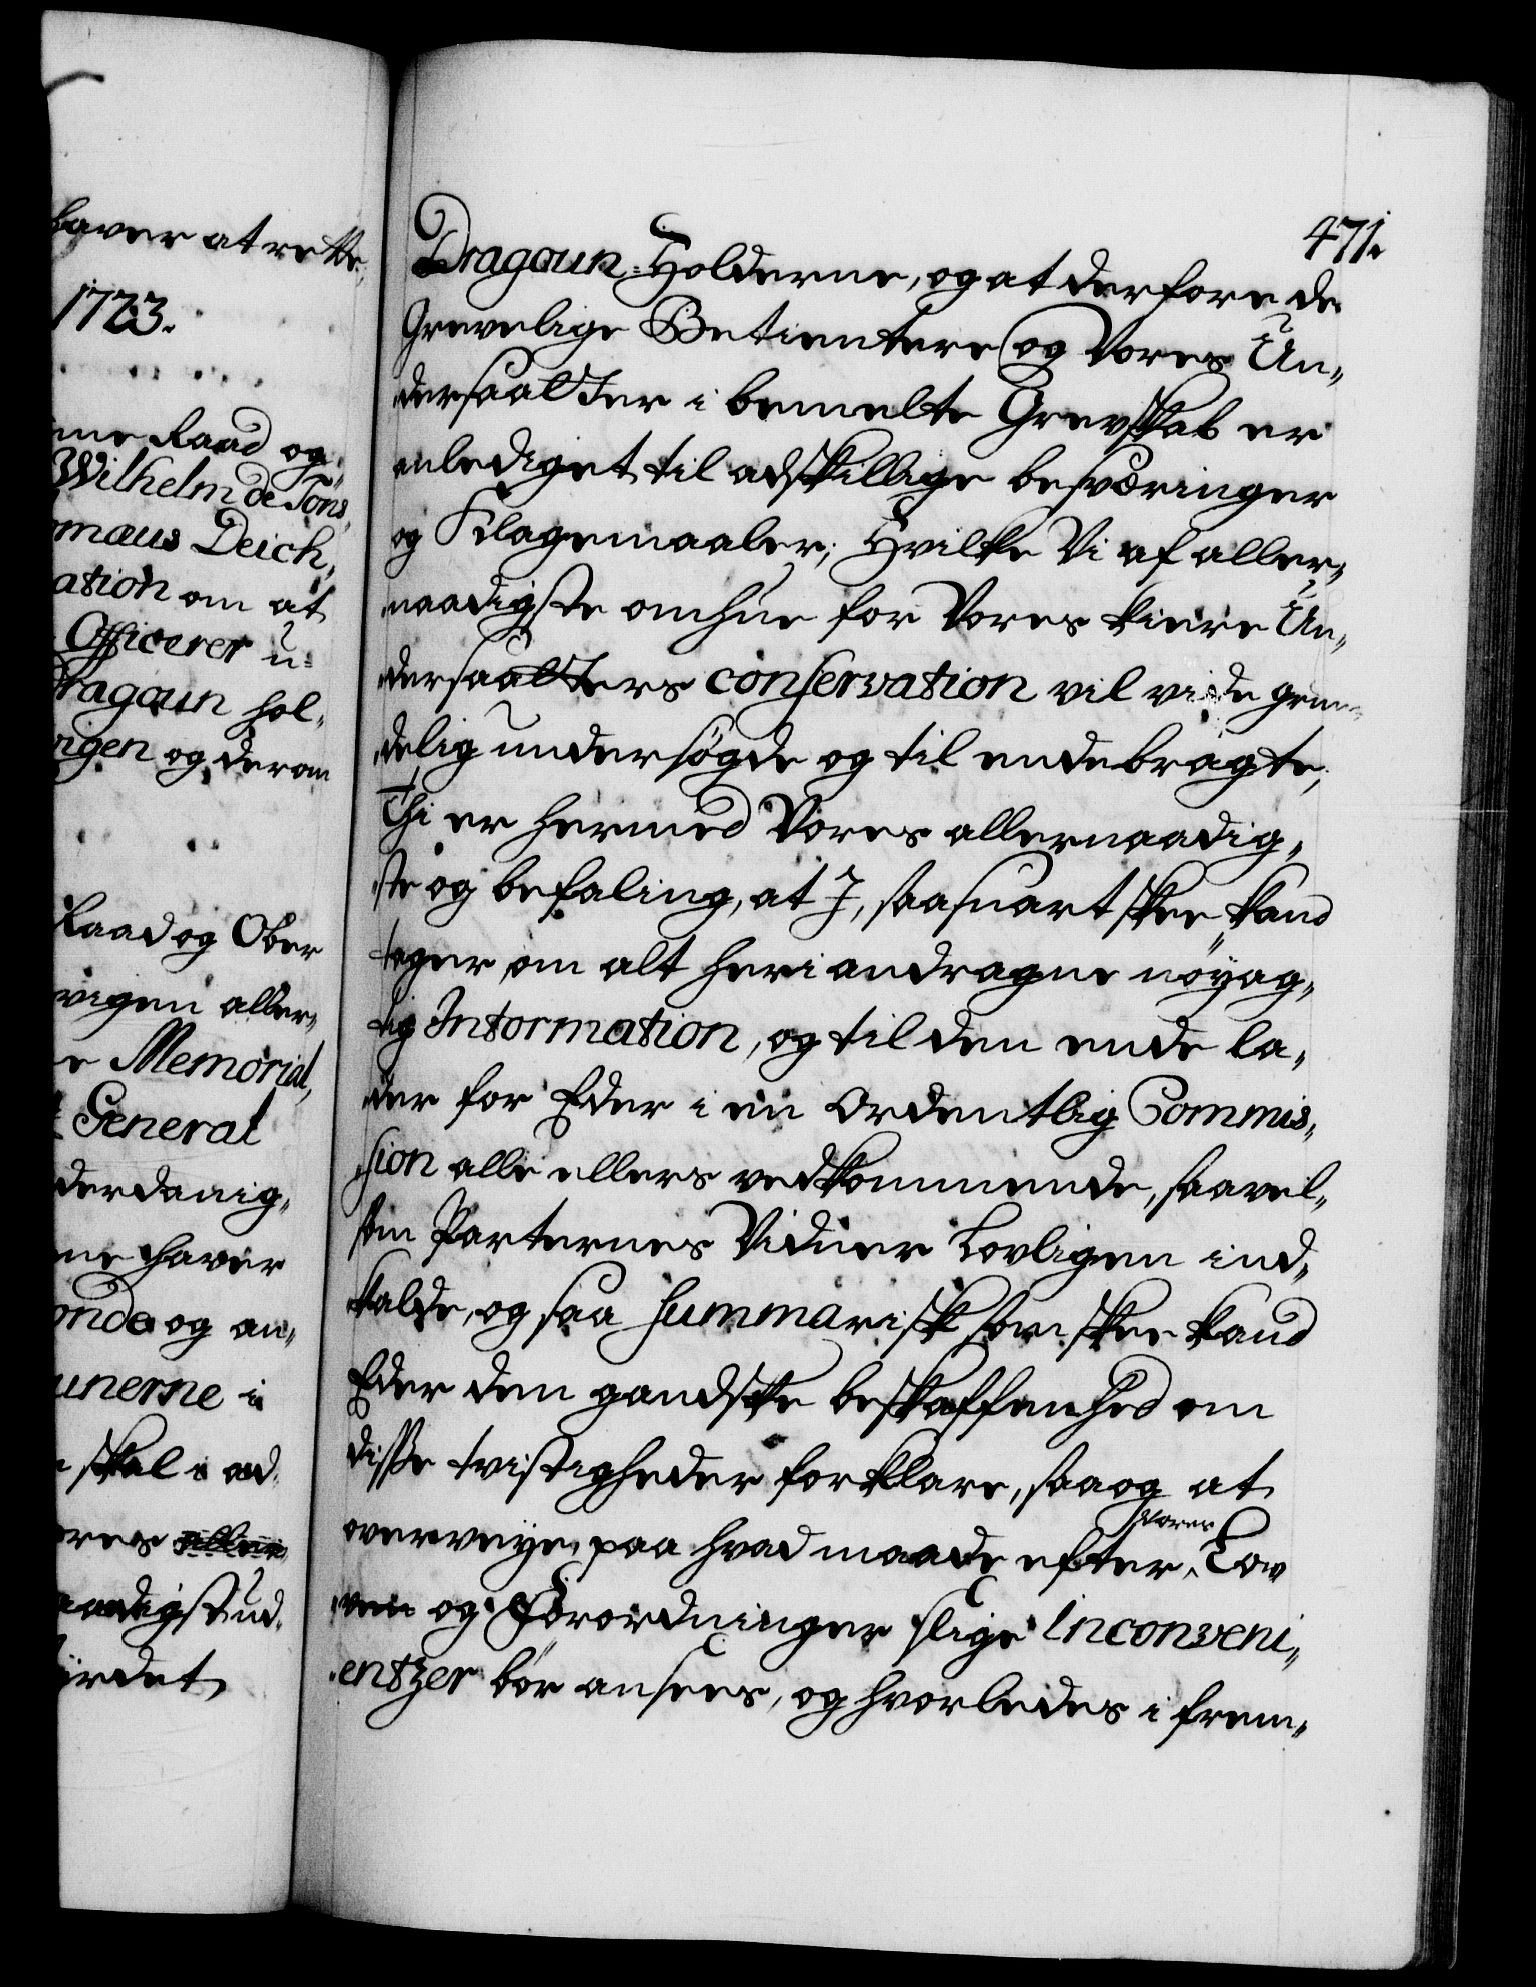 haver at rette,
1723.
ne Raad og
Wilhelm de Tons,
omæus Deich,
ation om at
Officerer u=
dragoun hol,
rigen og derom
Raad og Ober
vigen aller,
e Memorial,
General
derdanig,
ne haver
onde og an,
unerne i
skal i ad,
ores aller
aadigst ud,
ürdet
471.
Dragoun-Holderne, og at derfore de
Grevelige Betientere og Vores Un,
dersaatter i bemelte Grevskab er
anlediget til adskillige besværinger
og Klagemaaler; Hvilke Vi af aller,
naadigste omhue for Vores kiere Un,
dersaatters conservation vil vide grun,
delig undersøgde og til endebragte,
Thi er hermed Vores allernaadig,
ste og befaling, at I, saasnart skee kand
tager om alt heri andragne nøyag,
tig Information, og til den ende la,
der for Eder i en ordentlig Commis,
sion alle ellers vedkommende, saavel,
som Parternes Vidner lovligen ind,
kalde, og saa summarisk som skee kand
Eder den gandske beskaffenhed om
disse tvistigheder forklare, saa og at
overveye, paa hvad maade efter Vores Lo,
ven og Forordninger slige Inconveni,
entzer bør ansees, og hvorledes i frem,